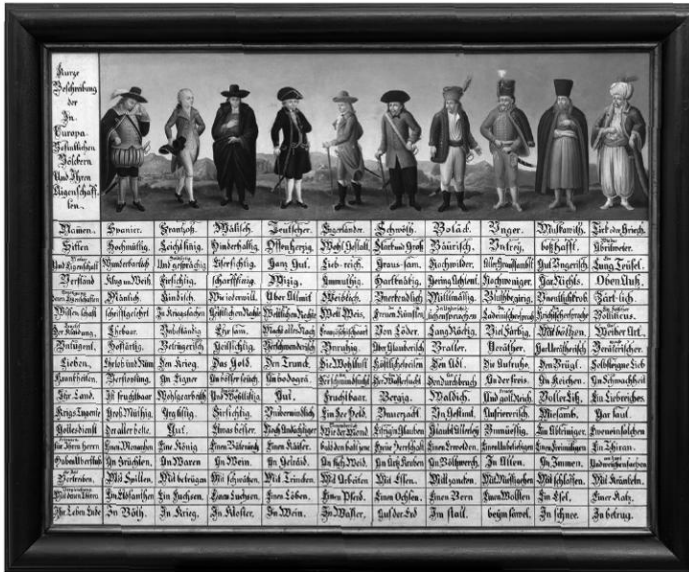 Kurze
Beschreibung
der
In
Europa
Befintlichen
Völckern
Und Ihren
Aigenschaff-
ten.
Namen. Spanier. Frantzoß. Wälisch. Teutscher. Engerländer. Schwöth. Polack. Unger. Muskawith. Tirk oder Griech.
Sitten Hochmüttig. Leichtsinig. Hinderhaltig. Offenherzig. Wohl Gestalt. Starck und Groß Bäurisch. Untrey. boßhafft. Abrilweter.
Und Eigenschaft Wunderbarlich Und gesprächig Eifersichtig. Ganz Gut. Lieb-reich. Graus-sam. Hochwilder. Aller Graussambst. Gut Ungerisch. Lung Teufel.
Verstand Klug un Weiß Firsichtig. scharffsinig. Wizig. Ammuthig. Hartknäkig. Gering Achtent. Nochweniger. Gar Nichts. Oben Auß.
Mänlich. Kindisch. Wie iederwill. Über Allmit Weiblich. Unerkendlich Mittlmäsig. Bluthbegirig. Unentlichkrob. Zärt-lich.
Wissenschaft schrifftgelehrt In Kriegssachen Geistlichen Rechte Weltlichen Rechte Welt Weis. Freuen Künsten Ladeinischersprach Krichischersprache Bollidicus.
Der Kleidung. Ehrbaar. Unbeständig Ehrsam. Macht alles Nach Französischeart Von Löder. Lang Röckig. Viel Färbig. Mit böltzen. Weiber Art.
Untugent. Hoffärtig. Betrügerisch Geilsichtig. Verschwenderisch Unruhig. Aber Glauberisch Braller. Veräther. Gar Verätherisch Veräterischer.
Lieben. Ehrlob und Rüm Den Krieg. Das Gold. Den Trunck. Die Wohllust Köstlichespeisen Den Adl. Die Aufruhe. Den Brügl. Selbsteigne Lieb
Kranckheiten. Verstopfung. An Eigner An böser seüch. An bodogrä. Der schwindsucht Der Wassersucht Den durchbruch An der freis. An Keichen. An Schwachheit
Ihr Land. Ist fruchtbaar Wohlgearbeith Und Wohllistig Gut. Fruchtbaar. Bergig. Waldich. Und goltReich. Voller Eiß. Ein Liebreiches
Krigs Tugente Groß Müthig Arglistig. Firsichtig. Unüberwindlich Ein See Held. Unverzacht Un Gestimt. Aufrierersich. Miesamb. Gar faul.
Gottesdienst Der aller beste. Gut. Etwas besser. Noch Andächtiger Wie der Mond Eifrig in Glauben Glaubt Allerley Unmüessig. Ein Abtriniger. Eweneinsolchen
für Ihren herrn Einen Monarchen Eine König Einen Käiser. bald den balt jene Freie Herrschaft Einen Erwelden. Einen Unbeliebigen Einen Freimulligen Ein Thiran.
Haben Uberfluß An Früchten. An Waren An Wein. An Getraid. An fich Weid. An Artz Kruben An Böltzwerch. In Allen. An Immen. Und weichen sachen
Vertreiben. Mit Spillen. Mit betrügen Mit schwätzen. Mit Trincken. Mit Arbeiten Mit Essen. Mit zancken. Mit Miessiachen. Mit schlaffen. Mit Kränkeln.
Mit denen Thiren Ein Elöfanthen Ein Fuchsen. Einen Luchsen. Einen Löben. Einen Pferd. Einen Ochsen. Einen Bern Einen Wolffen Ein Esel. Einer Katz.
Ihr Leben Ende In Böth. In Krieg. In Kloster. In Wein. In Wasser. Auf der Erd Im stall. beym sawel. In schnee. In betrug.